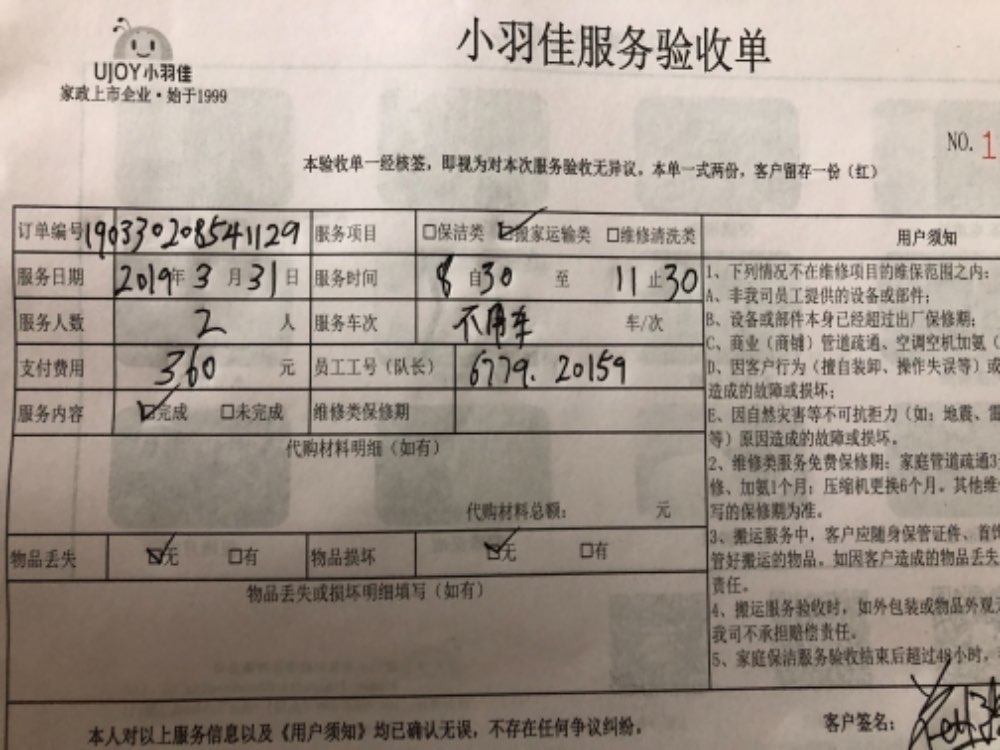 小羽佳服务验收单
UJOY小羽佳
家政上市企业·始于1999
NO. 1
本验收单一经核签，即视为对本次服务验收无异议。本单一式两份，客户留存一份（红）
订单编号 190330208541129 服务项目 □保洁类 ☑搬家运输类 □维修清洗类
服务日期 2019年3月31日 服务时间 8自30 至 11止30
服务人数 2 人 服务车次 不用车 车/次
支付费用 360 元 员工工号（队长） 6779. 20159
服务内容 ☑完成 □未完成 维修类保修期
代购材料明细（如有）
代购材料总额： 元
物品丢失 ☑无 □有 物品损坏 ☑无 □有
物品丢失或损坏明细填写（如有）
用户须知
1、下列情况不在维修项目的维保范围之内：
A、非我司员工提供的设备或部件；
B、设备或部件本身已经超过出厂保修期；
C、商业（商铺）管道疏通、空调空机加氨（
D、因客户行为（擅自装卸、操作失误等）或
造成的故障或损坏；
E、因自然灾害等不可抗拒力（如：地震、雷
等）原因造成的故障或损坏。
2、维修类服务免费保修期：家庭管道疏通3
修、加氨1个月；压缩机更换6个月。其他维
写的保修期为准。
3、搬运服务中，客户应随身保管证件、首饰
管好搬运的物品。如因客户造成的物品丢失
责任。
4、搬运服务验收时，如外包装或物品外观无
我司不承担赔偿责任。
5、家庭保洁服务验收结束后超过48小时，
本人对以上服务信息以及《用户须知》均已确认无误，不存在任何争议纠纷。
客户签名：